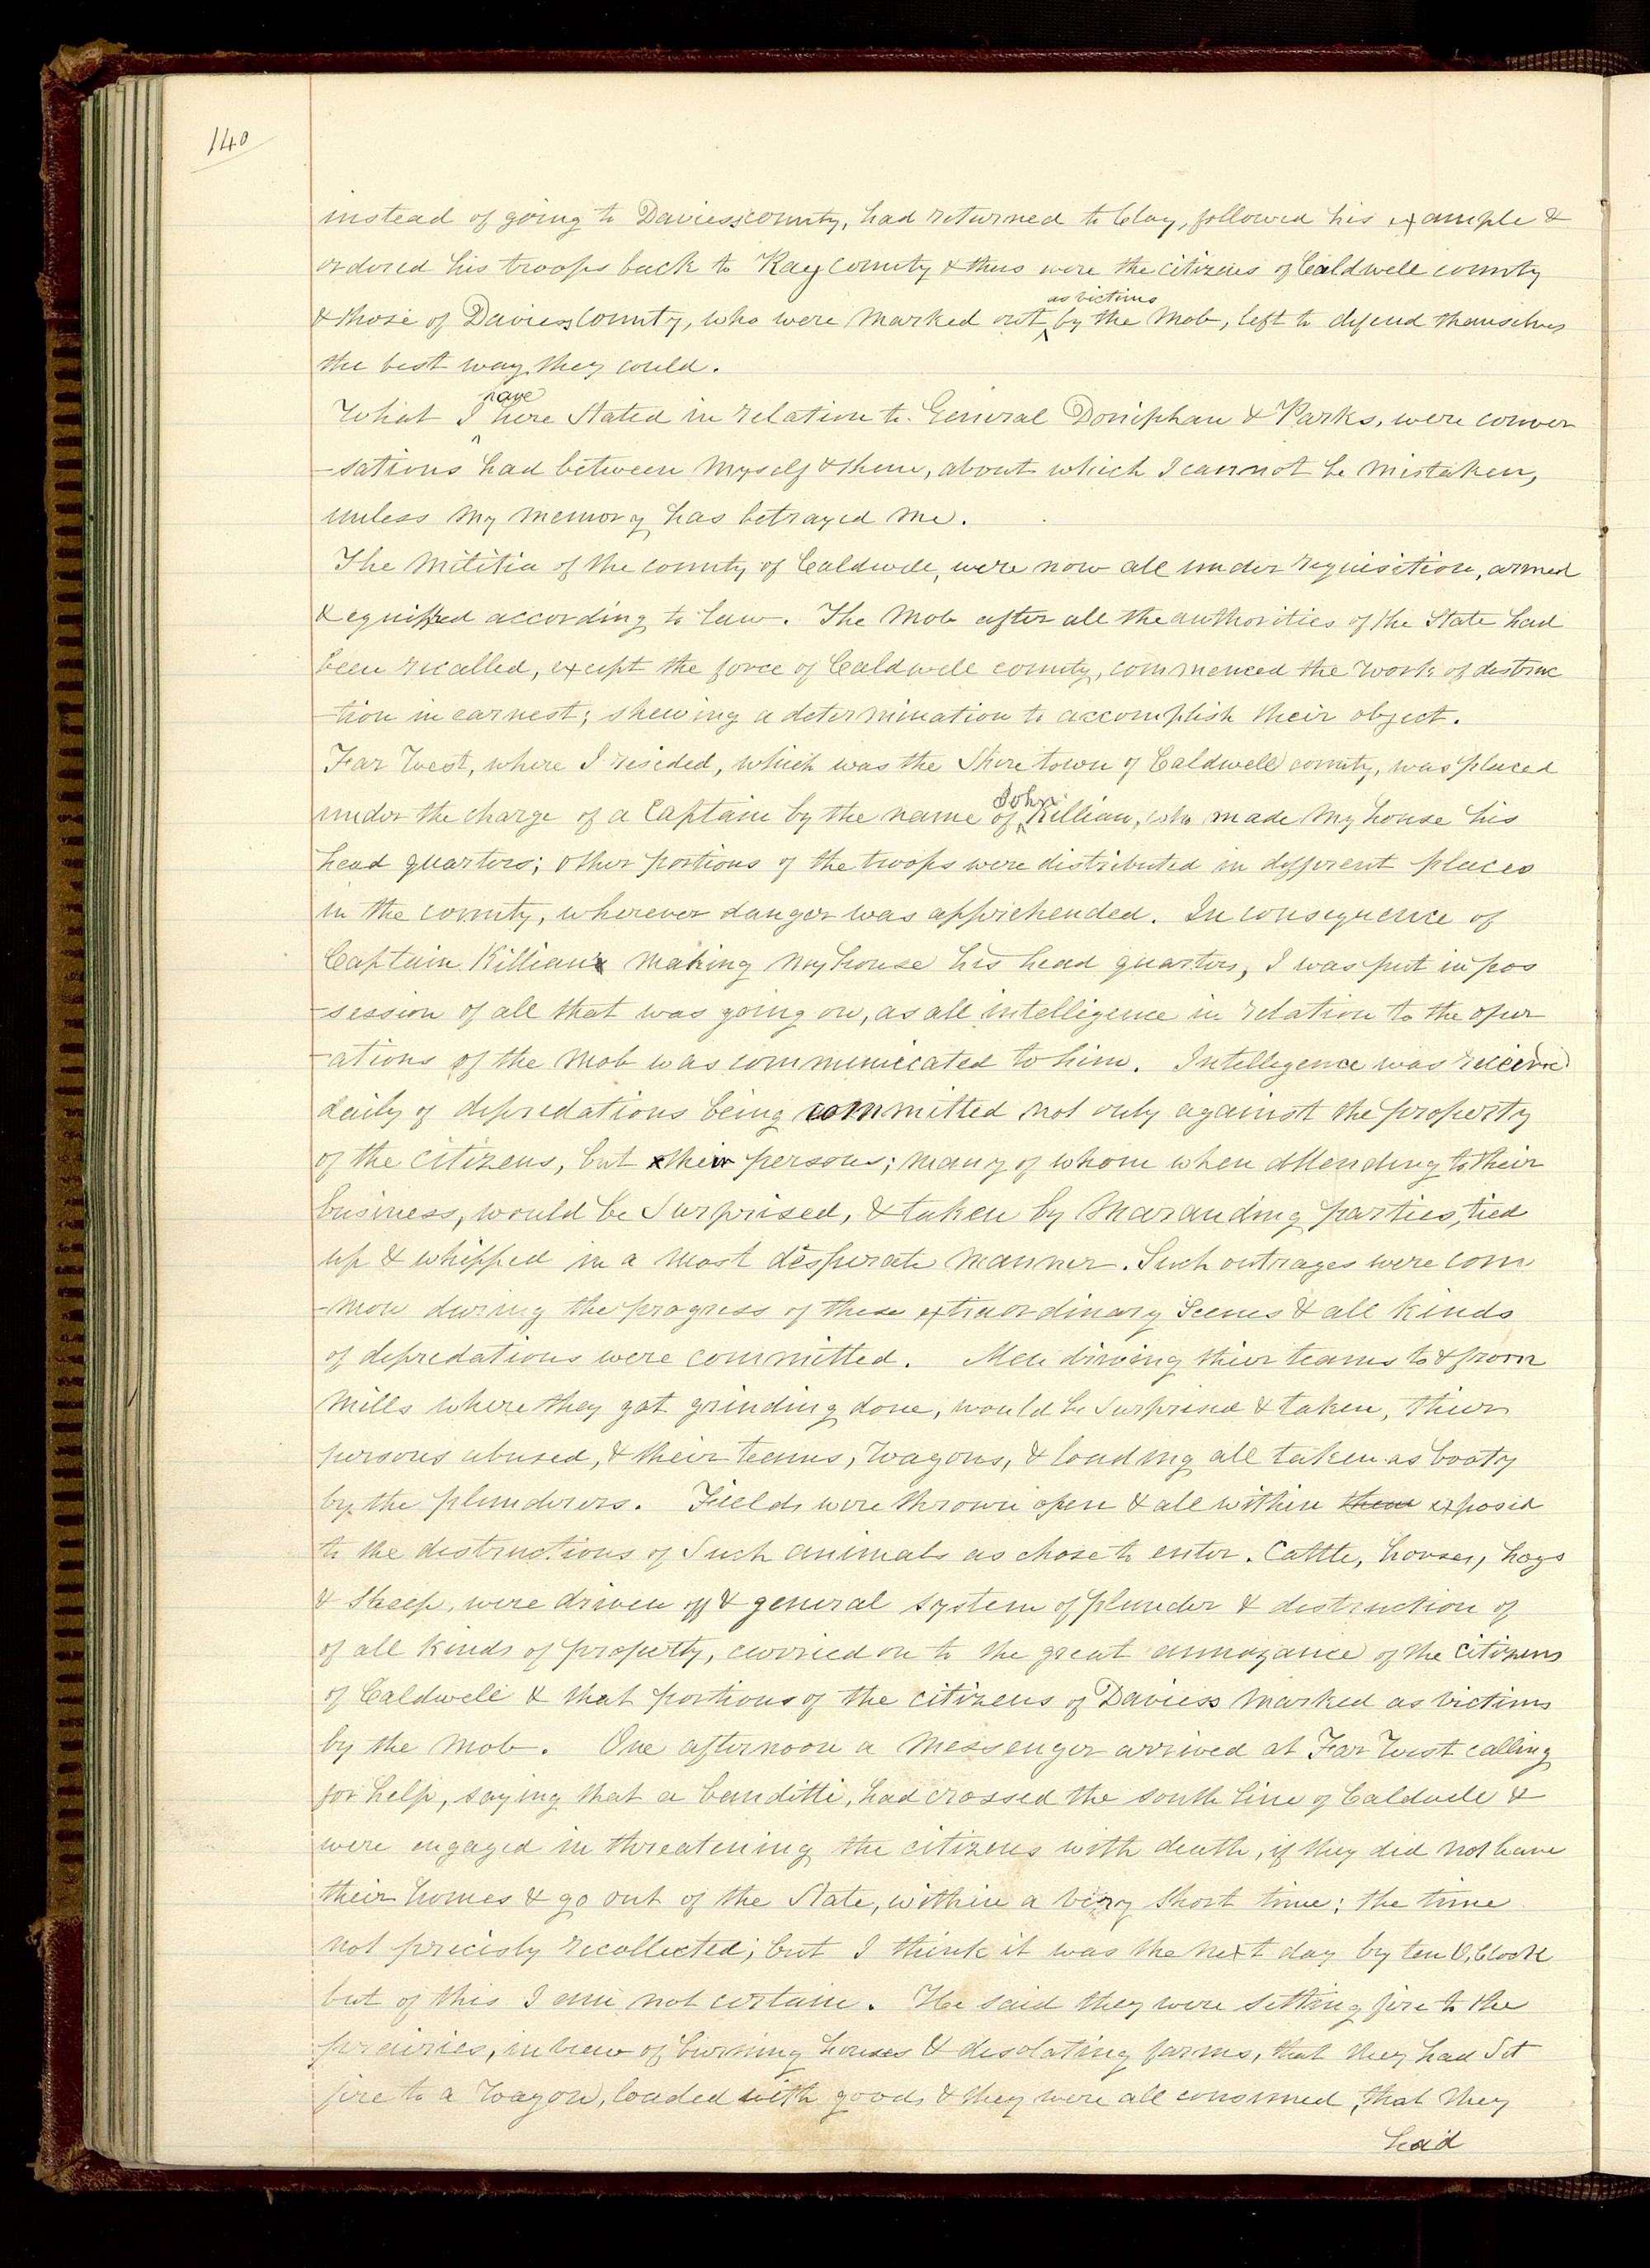 140
instead of going to Daviess county, had returned to Clay, followed his example &
ordered his troops back to Ray county & thus were the citizens of Caldwell county
& those of Daviess County, who were marked out as victims by the Mob, left to defend themselves
the best way they could.
What I have here Stated in relation to General Doniphan & Parks, were conver
-sations had between Myself & them, about which I cannot be mistaken,
unless my memory has betrayed me.
The Militia of the county of Caldwell, were now all under requisition, armed
& equipped according to law. The Mob after all the authorities of the State had
been recalled, except the force of Caldwell county, commenced the work of destruc
-tion in earnest; shewing a determination to accomplish their object.
Far West, where I resided, which was the Shire town of Caldwell county, was placed
under the charge of a Captain by the name of John Killian, who made My house his
head quarters; other portions of the troops were distributed in different places
in the county, wherever danger was apprehended. In consequence of
Captain Killian's making my house his head quarters, I was put in pos
-session of all that was going on, as all intelligence in relation to the oper
-ations of the Mob was communicated to him. Intelligence was received
daily of depredations being committed not only against the property
of the citizens, but their persons; many of whom when attending to their
business, would be Surprised, & taken by Marauding parties, tied
up & whipped in a most desperate manner. Such outrages were com
-mon during the progress of these extraordinary Scenes & all kinds
of depredations were committed. Men driving thier teams to & from
Mills where they got grinding done, would be Surprised & taken, thier
persons abused, & their teams, wagons, & loading all taken as booty
by the plunderers. Fields were thrown open & all within them exposed
to the destructions of Such animals as chose to enter. Cattle, horses, hogs
& Sheep, were driven off & general system of plunder & destruction of
of all kinds of property, carried on to the great annoyance of the citizens
of Caldwell & that portions of the citizens of Daviess marked as victims
by the Mob. One afternoon a Messenger arrived at Far West calling
for help, saying that a banditti, had crossed the south line of Caldwell &
were engaged in threatening the citizens with death, if they did not leave
their homes & go out of the State, within a very short time; the time
not precisly recollected; but I think it was the next day by ten O,Clock
but of this I am not certain. He said they were setting fire to the
prairies, in view of burning houses & desolating farms, that they had Set
fire to a Wagon, loaded with goods & they were all consumed, that they
had